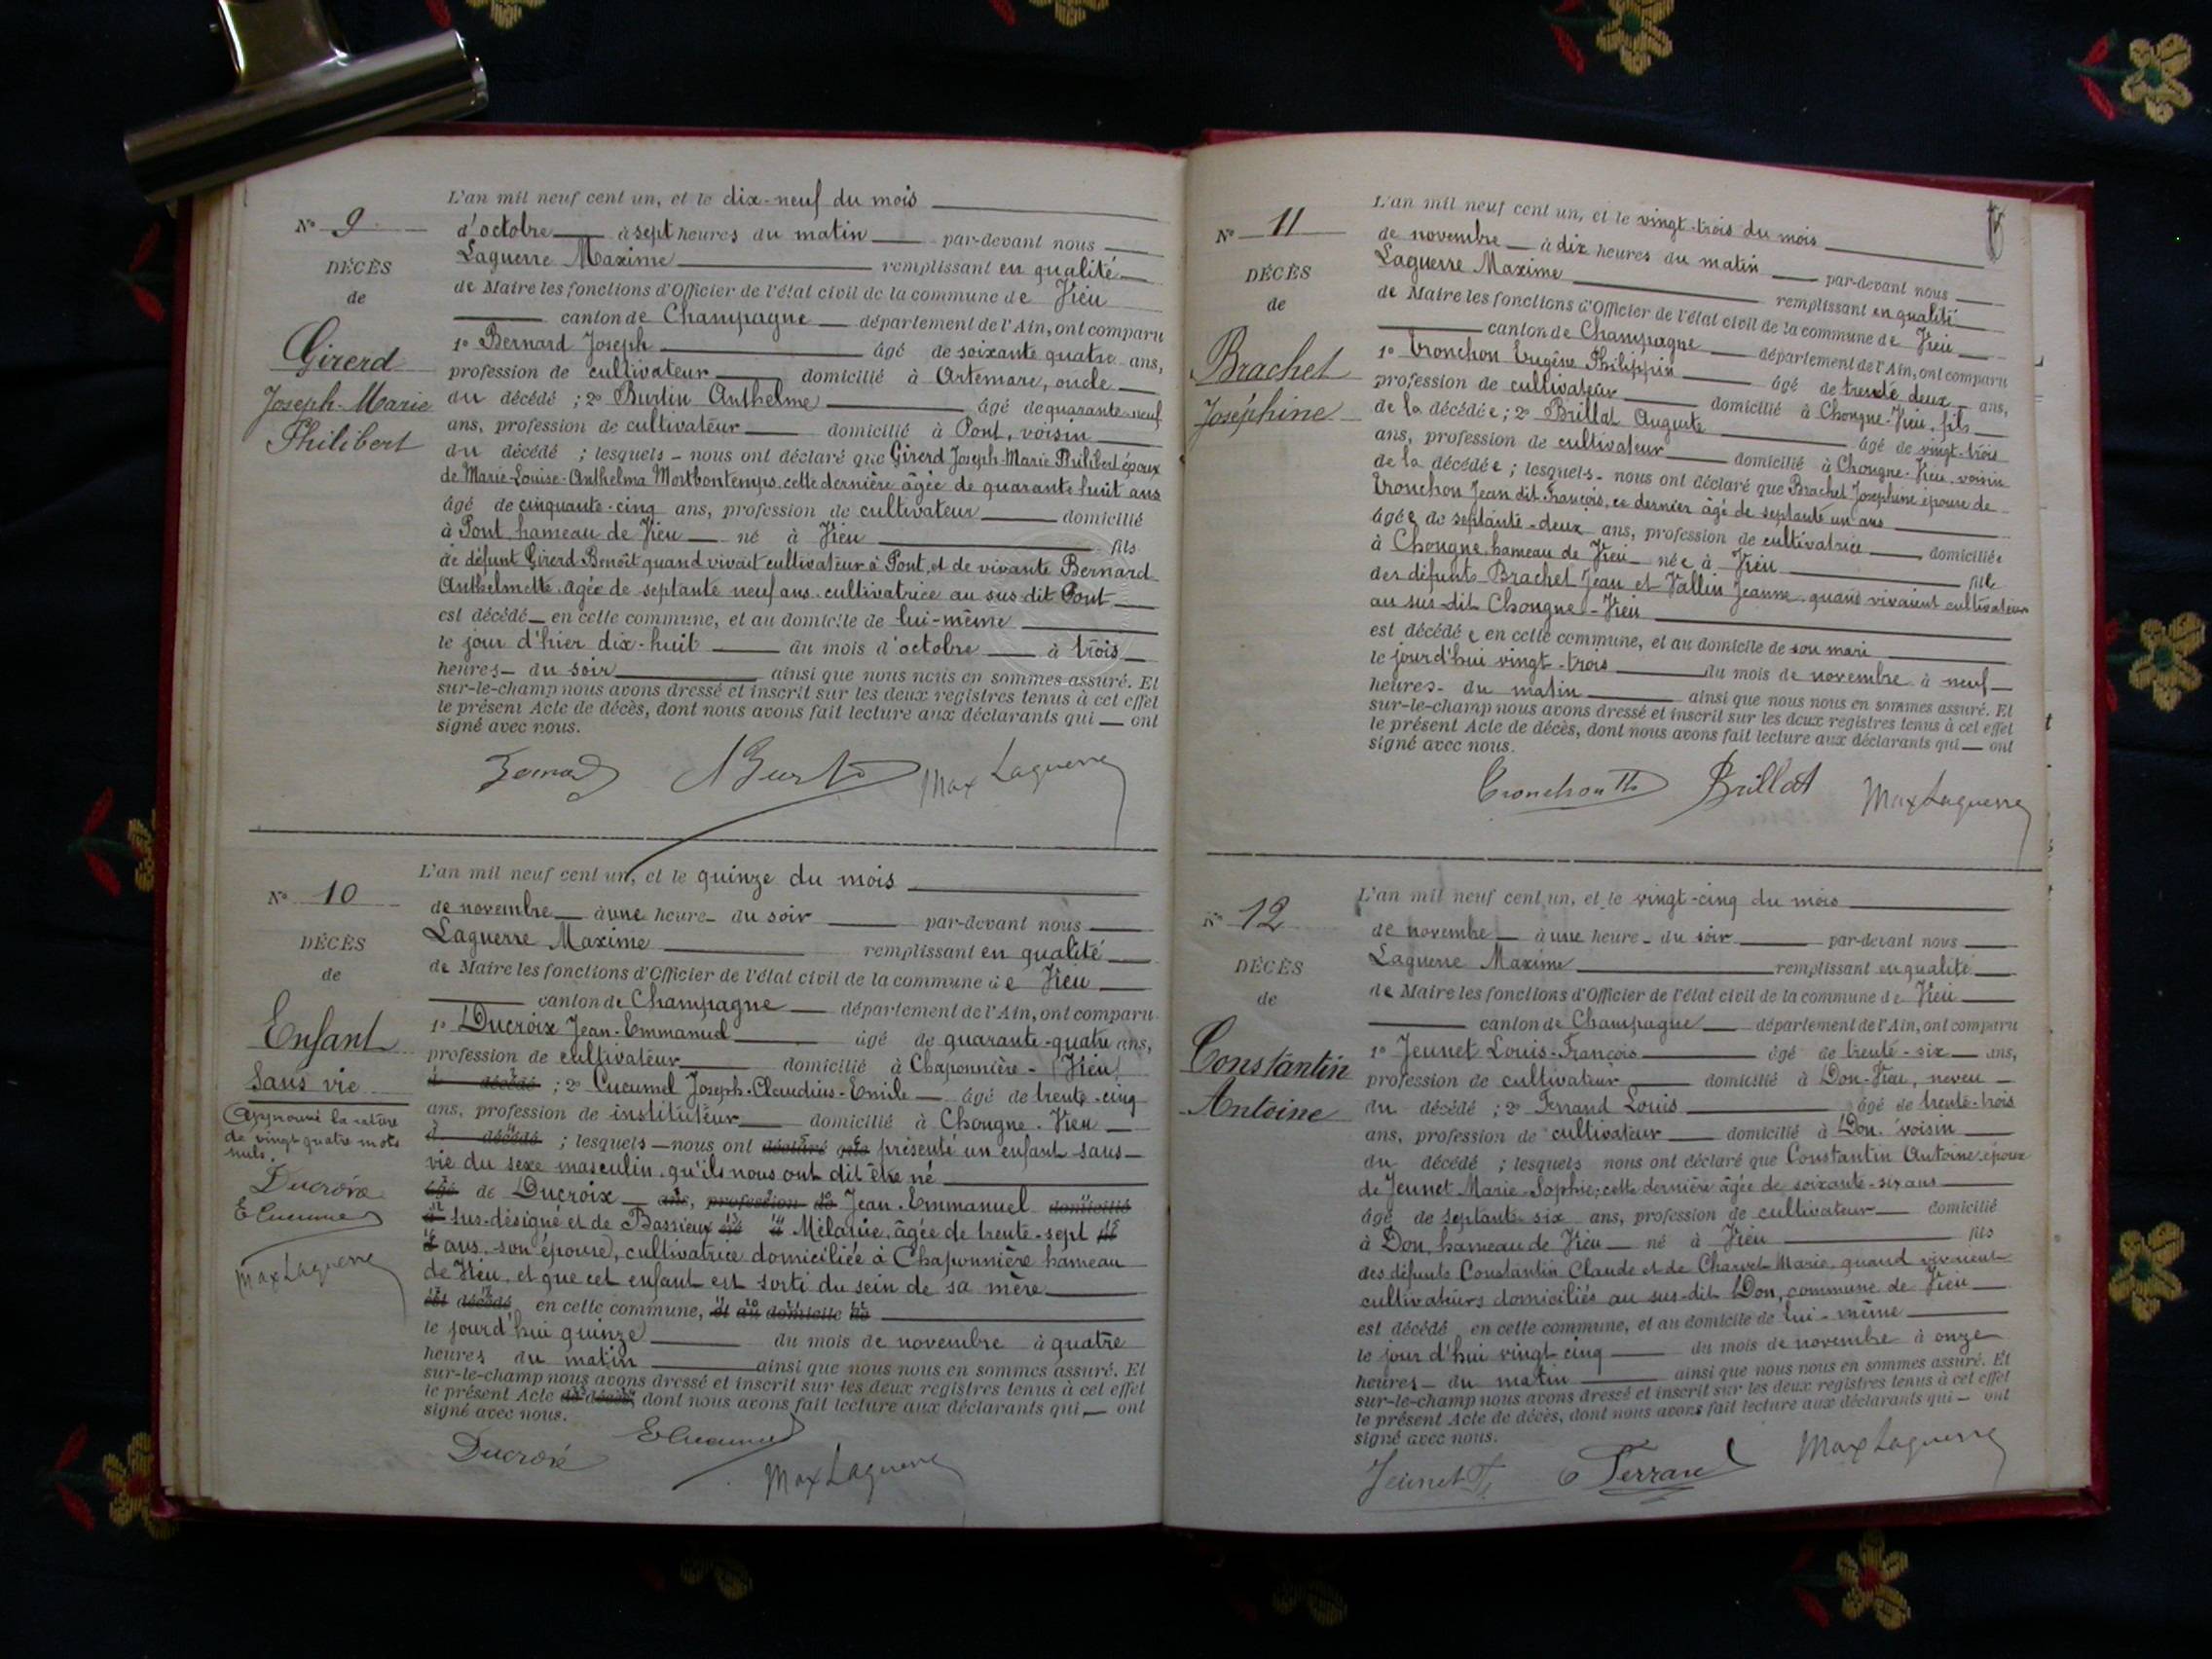 L'an mil neuf cent un, et le dix-neuf du mois
N° 9
d'octobre à sept heures du matin par-devant nous
Laguerre Maxime remplissant en qualité
DÉCÈS
de Maire les fonctions d'Officier de l'état civil de la commune de Vieu
de
canton de Champagne département de l'Ain, ont comparu
Girerd
Joseph-Marie
Philibert
1° Bernard Joseph âgé de soixante quatre ans,
profession de cultivateur domicilié à Artemare, oncle
du décédé ; 2° Burtin Anthelme âgé de quarante-neuf
ans, profession de cultivateur domicilié à Pont, voisin
du décédé ; lesquels nous ont déclaré que Girerd Joseph-Marie Philibert époux
de Marie-Louise-Anthelma Montbontemps, cette dernière âgée de quarante huit ans
âgé de cinquante-cinq ans, profession de cultivateur domicilié
à Pont, hameau de Vieu né à Vieu fils
de défunt Girerd Benoît quand vivait cultivateur à Pont, et de vivante Bernard
Anthelmette âgée de septante neuf ans, cultivatrice au sus-dit Pont
est décédé en cette commune, et au domicile de lui-même
le jour d'hier dix-huit du mois d'octobre à trois
heures du soir ainsi que nous nous en sommes assuré. Et
sur-le-champ nous avons dressé et inscrit sur les deux registres tenus à cet effet
le présent Acte de décès, dont nous avons fait lecture aux déclarants qui ont
signé avec nous.
Max Laguerre
L'an mil neuf cent un, et le quinze du mois
N° 10
de novembre à une heure du soir par-devant nous
Laguerre Maxime remplissant en qualité
DÉCÈS
de Maire les fonctions d'Officier de l'état civil de la commune de Vieu
de
canton de Champagne département de l'Ain, ont comparu
Enfant
Sans vie
Approuvé la rature
de vingt quatre mots
nuls.
Ducroix
E Cucumel
Max Laguerre
1° Ducroix Jean-Emmanuel âgé de quarante-quatre ans,
profession de cultivateur domicilié à Chaponnière-(Vieu)
d décédé ; 2° Cucumel Joseph-Claudius-Emile âgé de trente-cinq
ans, profession de instituteur domicilié à Chongne-Vieu
d décédé ; lesquels nous ont déclaré que présenté un enfant sans
vie du sexe masculin, qu'ils nous ont dit être né
âgé de Ducroix ans, profession de Jean-Emmanuel domicilié
à sus-désigné et de Bassieux né à Mélanie, âgée de trente-sept
ans, son épouse, cultivatrice domiciliée à Chaponnière hameau
de Vieu, et que cet enfant est sorti du sein de sa mère
est décédé en cette commune, et au domicile de
le jourd'hui quinze du mois de novembre à quatre
heures du matin ainsi que nous nous en sommes assuré. Et
sur-le-champ nous avons dressé et inscrit sur les deux registres tenus à cet effet
le présent Acte de décès, dont nous avons fait lecture aux déclarants qui ont
signé avec nous.
Ducroix E Cucumel Max Laguerre
L'an mil neuf cent un, et le vingt-trois du mois
N° 11
de novembre à dix heures du matin par-devant nous
Laguerre Maxime remplissant en qualité
DÉCÈS
de Maire les fonctions d'Officier de l'état civil de la commune de Vieu
de
canton de Champagne département de l'Ain, ont comparu
Brachet
Joséphine
1° Tronchon Eugène Philippin âgé de trente deux ans,
profession de cultivateur domicilié à Chongne-Vieu, fils
de la décédée ; 2° Brillat Auguste âgé de vingt-trois
ans, profession de cultivateur domicilié à Chongne-Vieu, voisin
de la décédée ; lesquels nous ont déclaré que Brachet Joséphine épouse de
Tronchon Jean dit François, ce dernier âgé de septante un ans
âgée de septante-deux ans, profession de cultivatrice domiciliée
à Chongne, hameau de Vieu née à Vieu fille
des défunts Brachet Jean et Vallin Jeanne quand vivaient cultivateurs
au sus-dit Chongne-Vieu
est décédée en cette commune, et au domicile de son mari
le jourd'hui vingt-trois du mois de novembre à neuf
heures du matin ainsi que nous nous en sommes assuré. Et
sur-le-champ nous avons dressé et inscrit sur les deux registres tenus à cet effet
le présent Acte de décès, dont nous avons fait lecture aux déclarants qui ont
signé avec nous.
Tronchon Brillat Max Laguerre
L'an mil neuf cent un, et le vingt-cinq du mois
N° 12
de novembre à une heure du soir par-devant nous
Laguerre Maxime remplissant en qualité
DÉCÈS
de Maire les fonctions d'Officier de l'état civil de la commune de Vieu
de
canton de Champagne département de l'Ain, ont comparu
Constantin
Antoine
1° Jeunet Louis-François âgé de trente-six ans,
profession de cultivateur domicilié à Don-Vieu, neveu
du décédé ; 2° Ferrand Louis âgé de trente-trois
ans, profession de cultivateur domicilié à Don, voisin
du décédé ; lesquels nous ont déclaré que Constantin Antoine, époux
de Jeunet Marie-Sophie, cette dernière âgée de soixante-six ans
âgé de septante six ans, profession de cultivateur domicilié
à Don, hameau de Vieu né à Vieu fils
des défunts Constantin Claude et de Charvet Marie, quand vivaient
cultivateurs domiciliés au sus-dit Don, commune de Vieu
est décédé en cette commune, et au domicile de lui-même
le jour d'hui vingt-cinq du mois de novembre à onze
heures du matin ainsi que nous nous en sommes assuré. Et
sur-le-champ nous avons dressé et inscrit sur les deux registres tenus à cet effet
le présent Acte de décès, dont nous avons fait lecture aux déclarants qui ont
signé avec nous.
Jeunet Ferrand Max Laguerre